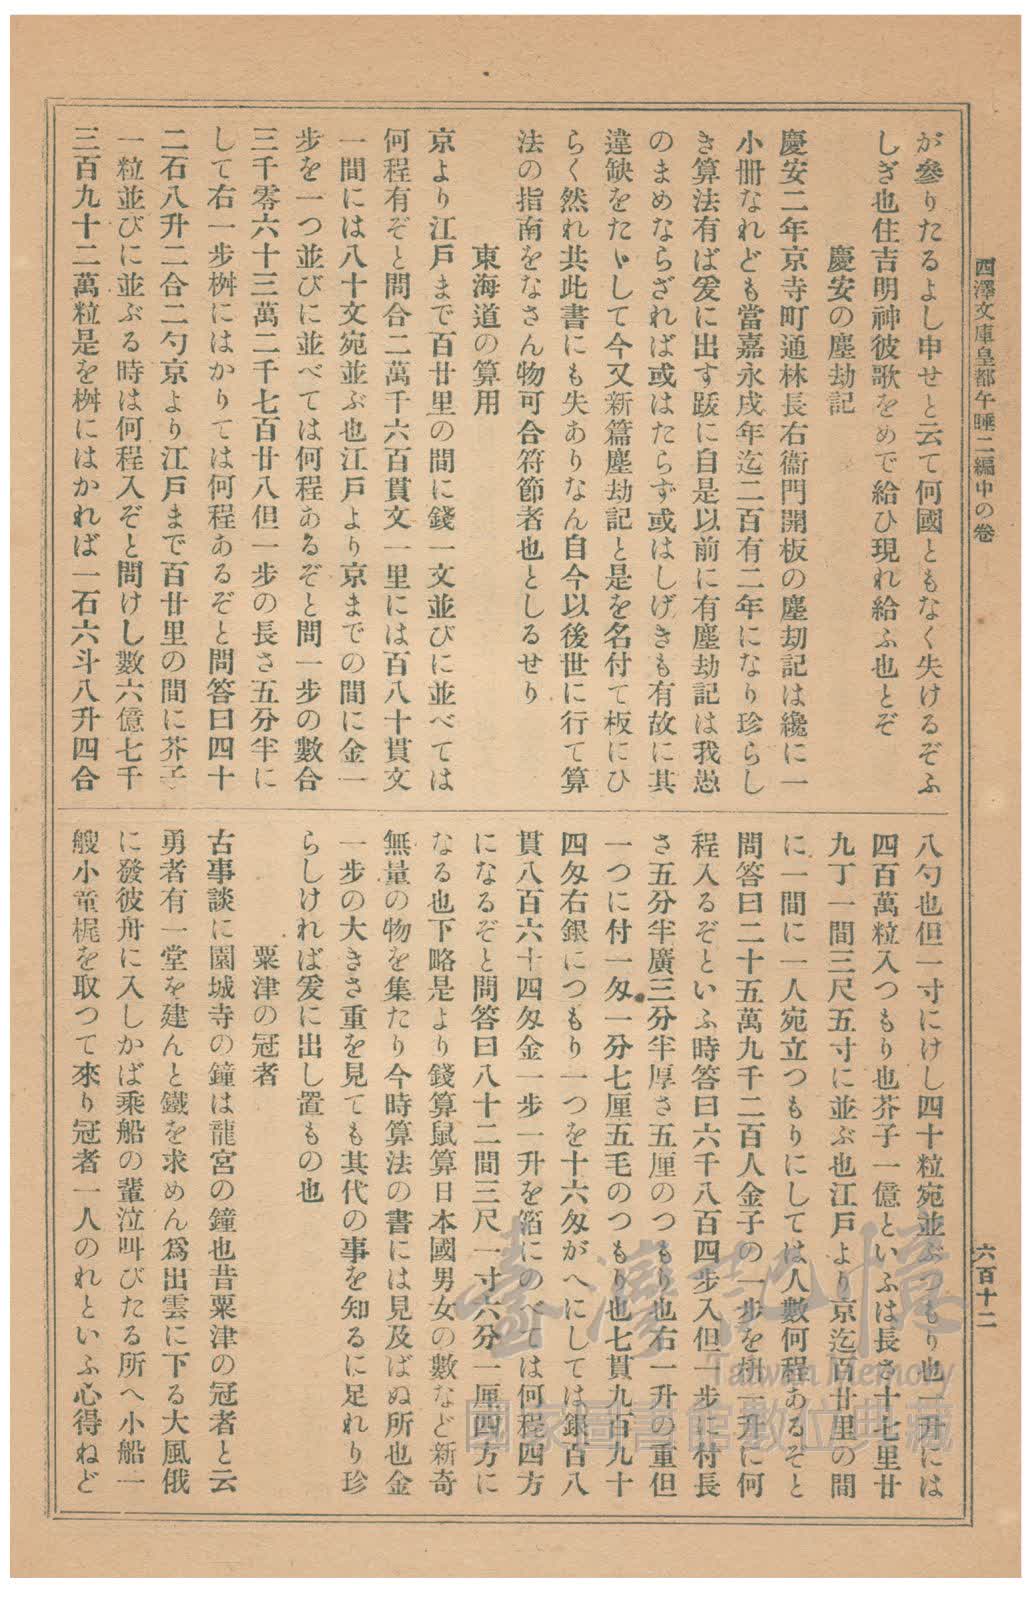 四澤文庫皇都午睡二編中の卷
六百十二
が參りたるよし申せと云て何國ともなく失けるぞふ
しぎ也住吉明神彼歌をめで給ひ現れ給ふ也とぞ
慶安の塵劫記
慶安二年京寺町通林長右衞門開板の塵刧記は纔に一
小冊なれども當嘉永戌年迄二百有二年になり珍らし
き算法有ば爰に出す跋に自是以前に有塵劫記は我愚
のまめならざれば或はたらず或はしげきも有故に其
違缺をたゝして今又新篇塵劫記と是を名付て板にひ
らく然れ共此書にも失ありなん自今以後世に行て算
法の指南をなさん物可合符節者也としるせり
東海道の算用
京より江戶まで百廿里の間に錢一文並びに並べては
何程有ぞと問合二萬千六百貫文一里には百八十貫文
一間には八十文宛並ぶ也江戶より京までの間に金一
步を一つ並びに並べては何程あるぞと問一步の數合
三千零六十三萬二千七百廿八但一步の長さ五分半に
して右一步桝にはかりては何程あるぞと問答曰四十
二石八升二合二勺京より江戶まで百廿里の間に芥子
一粒並びに並ぶる時は何程入ぞと問けし數六億七千
三百九十二萬粒是を桝にはかれば一石六斗八升四合
八勺也但一寸にけし四十粒宛並ぶつもり也一升には
四百萬粒入つもり也芥子一億といふは長さ十七里廿
九丁一間三尺五寸に並ぶ也江戶より京迄百廿里の間
に一間に一人宛立つもりにしては人數何程あるそと
問答曰二十五萬九千二百人金子の一步を桝一升に何
程入るぞといふ時答曰六千八百四步入但一步に村長
さ五分半廣三分半厚さ五厘のつもり也右一升の重但
一つに付一匁一分七厘五毛のつもり也七貫九百九十
四匁右銀につもり一つを十六匁がへにしては銀百八
貫八百六十四匁金一步一升を箔にのべては何程四方
になるぞと問答曰八十二間三尺一寸六分一厘四方に
なる也下略是より錢算鼠算日本國男女の數など新奇
無量の物を集たり今時算法の書には見及ばぬ所也金
一步の大きさ重を見ても其代の事を知るに足れり珍
らしければ爰に出し置もの也
粟津の冠者
古事談に園城寺の鐘は龍宮の鐘也昔粟津の冠者と云
勇者有一堂を建んと鐵を求めん爲出雲に下る大風俄
に發彼舟に入しかば乘船の輩泣叫びたる所へ小船一
艘小童梶を取つて來り冠者一人のれといふ心得ねど
臺灣記憶
Taiwan Memory
國家圖書館數位典藏